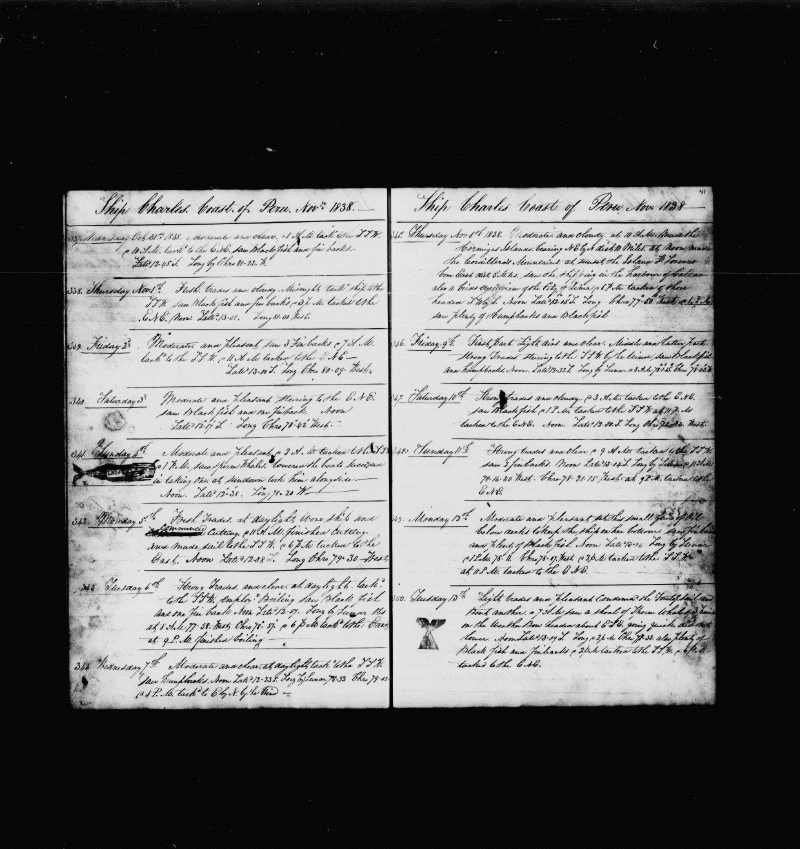 Ship Charles. Coast. of Peru. Nov.r 1838.
Wednesday Oct. 31st 1838. Moderate and clear. A.M. tack'd the S.S.W.
10 A.M. tack'd to the E.N.E. saw Black fish and fin backs.
Latd 12.45 S. Long by Chro 81.22 W.
338. Thursday Nov 1st. Fresh Trades and cloudy Midnight tackd ship to the
S.S.W. saw Blackfish and fin backs, P.M. tacked to the
E.N.E. Noon. Latd 13. Long West.
339. Friday 2d Moderate and pleasant, saw 3 Finbacks 7 A.M.
tackd to the S.S.W. 11 A.M. tacked to the N E
Latd 13. S. Long Chro 80.09. West.
340. Saturday 3d Moderate and pleasant steering to the E.N.E.
saw Blackfish and one finback. Noon
Latd 12.17 S. Long Chro 78.42 West.
341. Sunday 4th Moderate and pleasant, 2 A.M. tacked to the
1 P.M. saw sperm Whales. Lowered the boats succeeded
in taking one at sundown took him alongside
Noon. Latd 12.38. Long 78.20 W.
342. Monday 5th Fresh Trades. at daylight wore ship and
commenced Cutting. 11 A.M. finished Cutting
and made sail to the S.S.W. 6 P.M. tacked to the
East. Noon Latd 12.28 S. Long Chro 79.30 West.
343 Tuesday 6th Strong Trades, and clear at daylight. tackd
to the S.S.W. employd Boiling saw Black fish
and one fin back. Noon Latd 12.07. Long by Lunar Obs
at 77.58. West, Chro 78.37. 6 P.M. tackd to the East
at 9 P.M. finished Boiling
344 Wednesday 7th Moderate and clear. at daylight tackd to the S.S.W.
saw humpbacks. Noon Latd 12.23 S. Long by Lunar 78.33 Chro 78.
4 P.M. tackd to E by N. by the Wind
Ship Charles Coast of Peru Nov. 1838
345. Thursday Nov 8th 1838. Moderate and cloudy. at 10 A.M. made the
Hormigas Islands bearing N.E. by N dist 10 Miles, at Noon, made
the Cordillera Mountains at sunset, the Island St Lorenzo
bore East dist 5 Miles, saw the shipping in the harbour of Callao
also a view of the City of Lima, P.M. tacked of shore
headed S.W. by S. Noon Latd 12. S. Long Chro 77.58 West
saw plenty of humpbacks and Blackfish
346. Friday 9th. First Part Light airs and clear. Middle and Latter part
strong Trades steering to the S.S.W. by the wind, saw Blackfish
and humpbacks. Noon. Latd 12.32 S. Long by Lunar Chro
347. Saturday 10th Strong trades and cloudy. 3 A.M. tacked to the E.N.E.
saw Blackfish 1 P.M. tacked to the S.S.W. at 11 P.M
tacked to the E.N.E. Noon. Latd 12. S. Long Chro West.
348. Sunday 11th Strong trades and clear 9 A.M. tacked to the S.S.W.
saw 2 finbacks Noon Latd 13.04 S. Long by Lunar
78.16.30 West. Chro 78.21.15 West. at 9 P.M. tacked to the
E.N.E.
349. Monday 12th Moderate and pleasant
below decks to keep the ship on her bottom
and plenty of Blackfish. Noon Latd Long by Lunar
P.M. 78. Chro 78.07. West P.M. tacked to the S.S.W.
at 11 P.M. tacked to the E N.E.
350. Tuesday 13th Light Trades and pleasant Condemnd the Foretopsail and
Bent another. 7 A.M. saw a shoal of Sperm Whales
on the weather Bow headed about E.S.E. going quick did not
lower Noon Latd 13.09 S. Long P.M Chro 78.38. also plenty of
Blackfish and finbacks 2 P.M. tacked to the S.S.W. 6 P.M
tacked to the E.N.E.